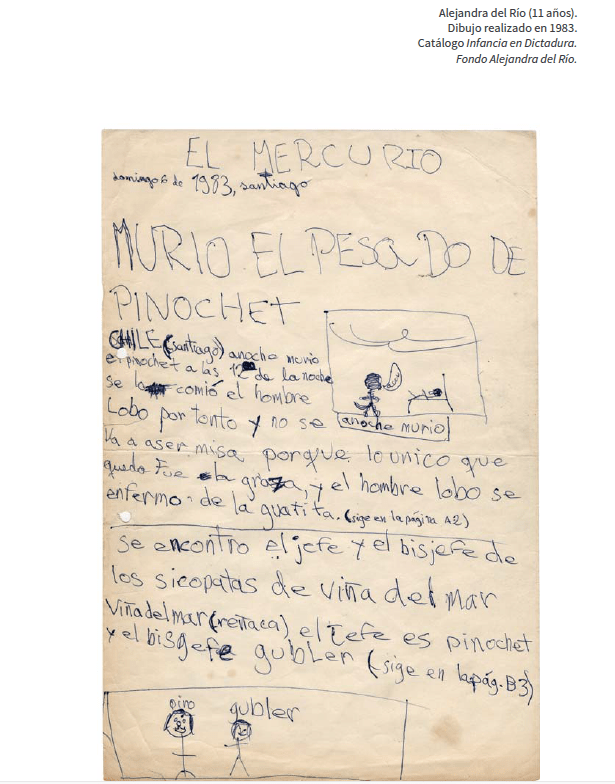 Alejandra del Río (11 años).
Dibujo realizado en 1983.
Catálogo Infancia en Dictadura.
Fondo Alejandra del Río.
EL MERCURIO
domingo 6 de 1983, santiago
MURIO EL PESADO DE
PINOCHET
CHILE (santiago) anoche murio
el pinochet a las 12 de la noche
se lo comió el hombre
Lobo por tonto y no se
anoche murio
va a aser misa porque lo unico que
quedo Fue la graza, y el hombre lobo se
enfermo de la guatita. (sige en la página A2)
se encontro el jefe y el bisjefe de
los sicopatas de viña del mar
Viña del mar (reñaca) el Jefe es pinochet
y el bisgefe gubler (sige en la pág. B3)
pino gubler